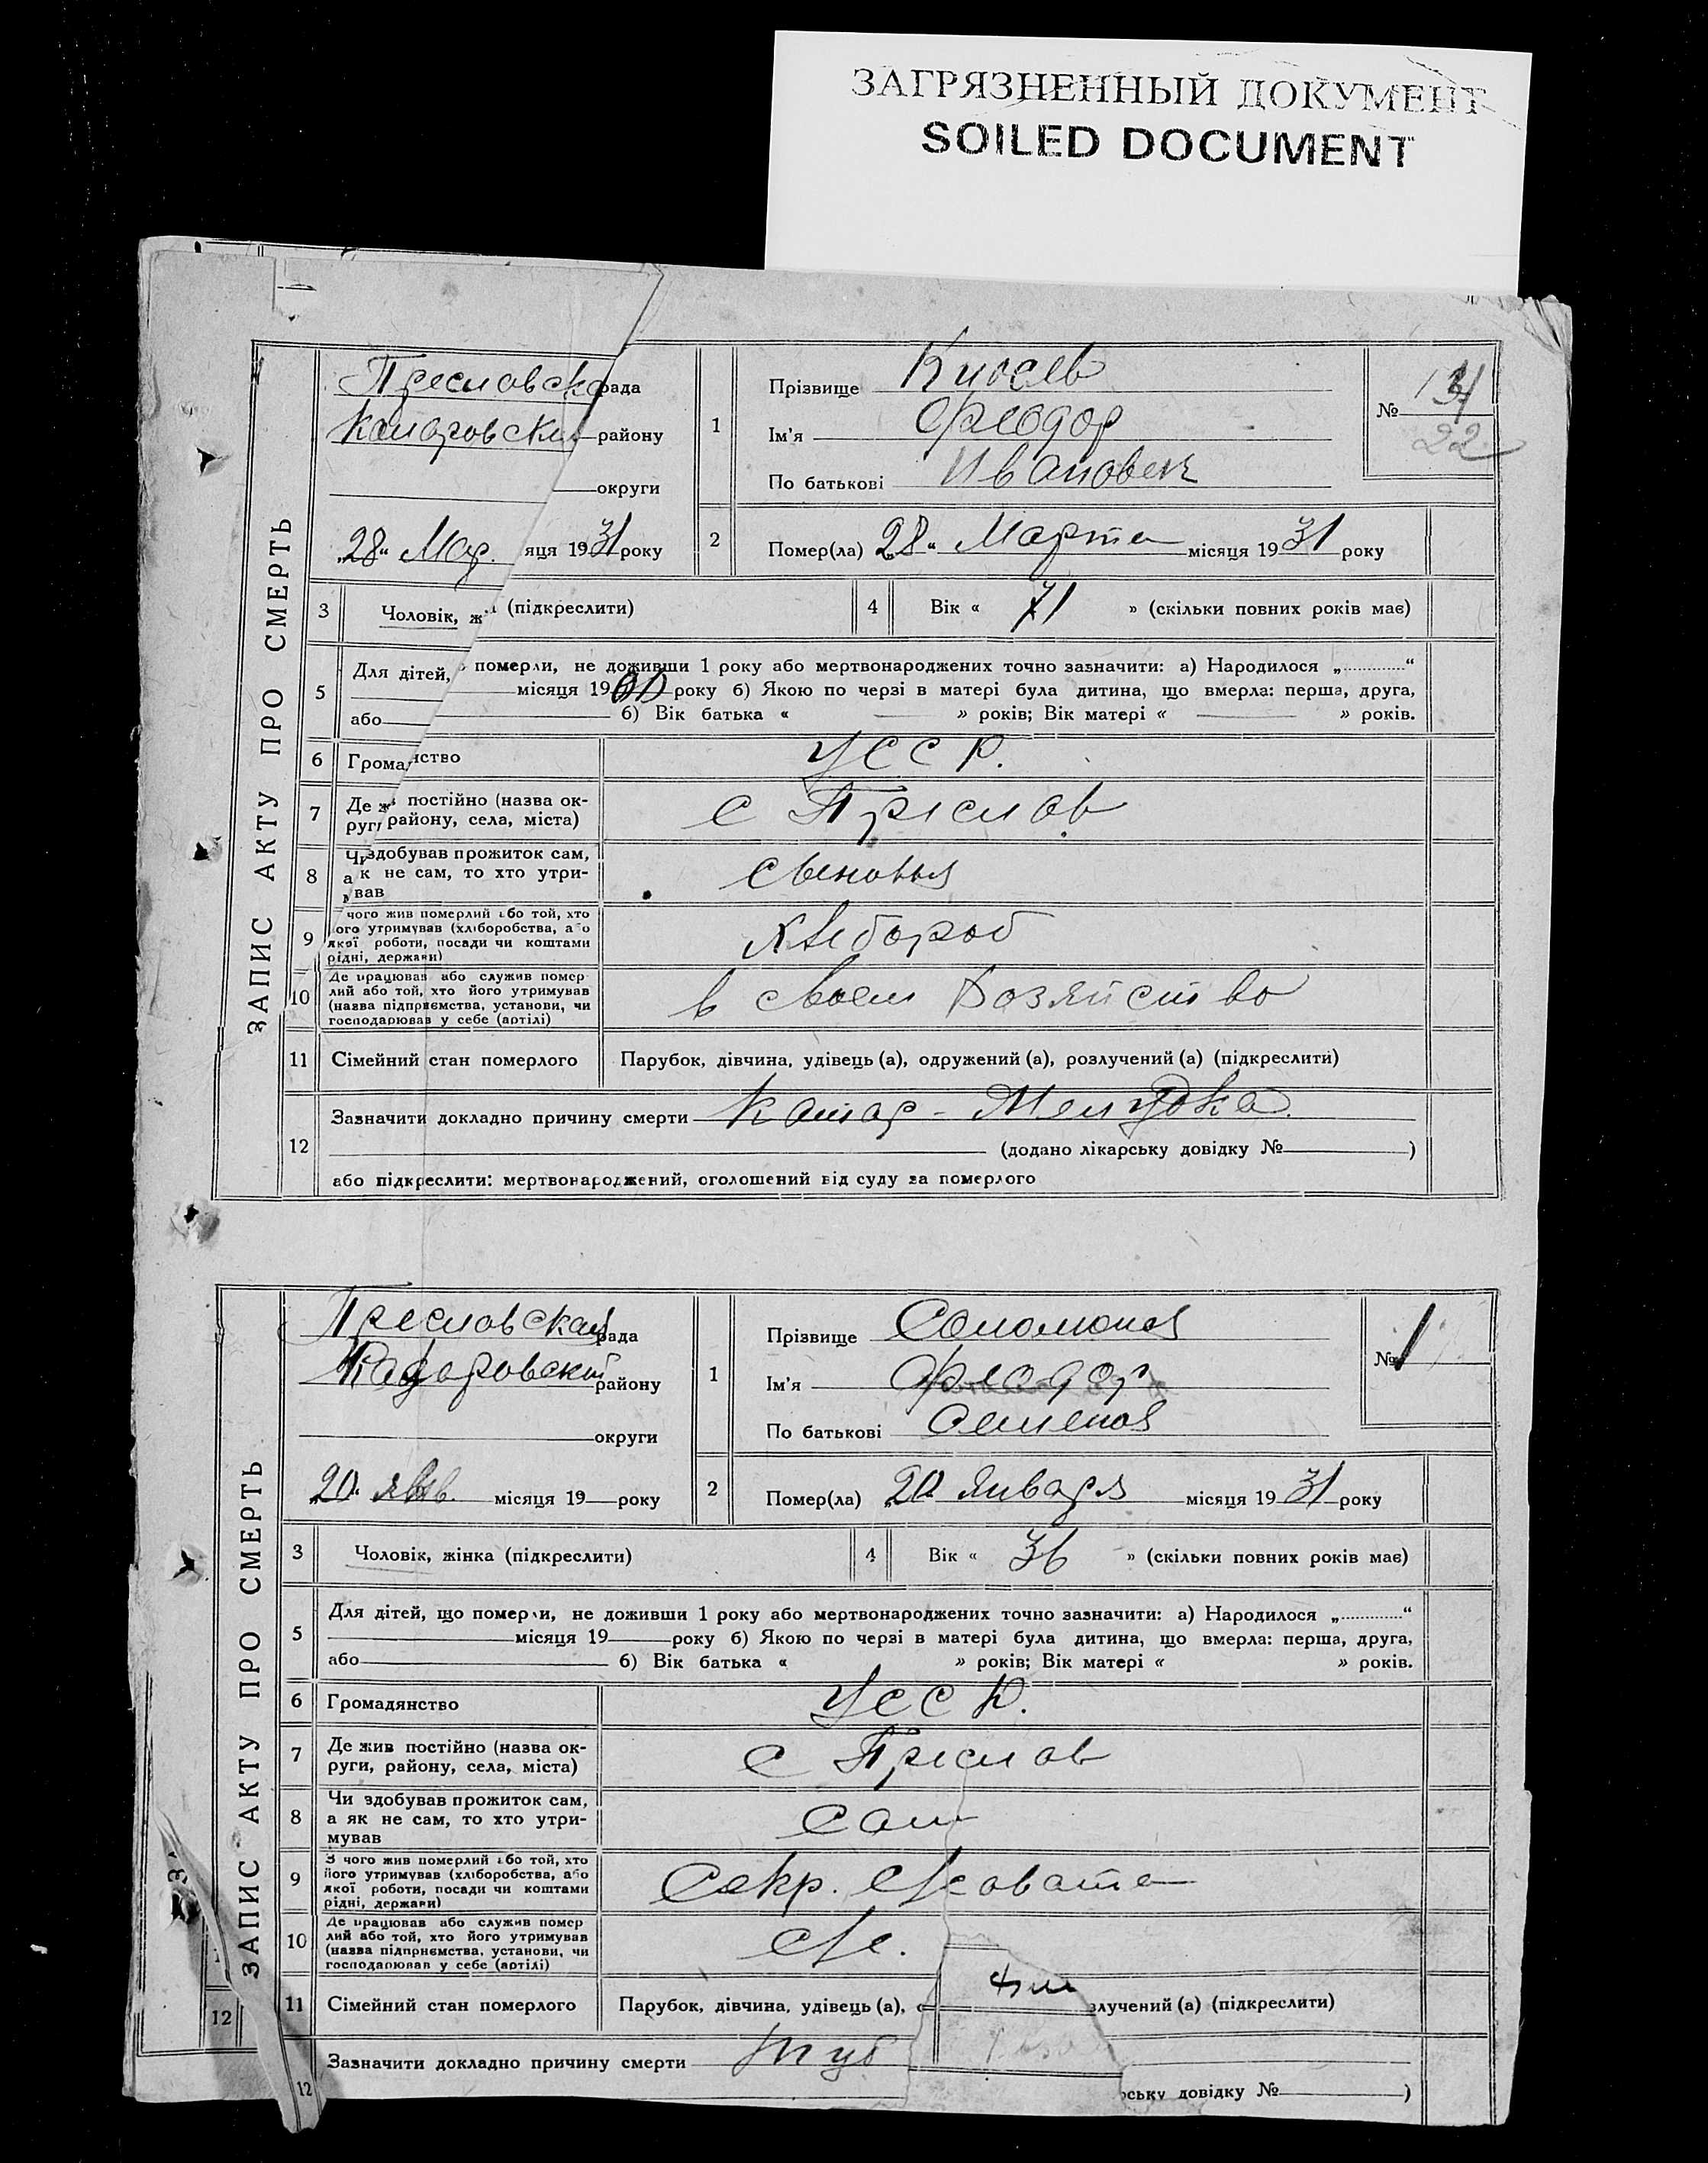 ЗАГРЯЗНЕННЫЙ ДОКУМЕНТ
SOILED DOCUMENT
ЗАПИС АКТУ ПРО СМЕРТЬ
Пресловска рада
району
округи
„28“ Мар. яця 1931 року
1
Прізвище Кюсев
Ім'я Феодор
По батькові Ивановеч
№
22
2
Помер(ла) „28“ Марта місяця 1931 року
3
Чоловік, ж (підкреслити)
4
Вік « 71 » (скільки повних років має)
5
Для дітей, померли, не доживши 1 року або мертвонароджених точно зазначити: а) Народилося „.............“
місяця 19 року б) Якою по черзі в матері була дитина, що вмерла: перша, друга,
або б) Вік батька « — » років; Вік матері « — » років.
6
Громадянство
УССР.
7
Де ж постійно (назва ок-
руг району, села, міста)
с Преслав
8
Чи здобував прожиток сам,
а к не сам, то хто утри-
вав
сыновья
9
чого жив померлий або той, хто
ого утримував (хліборобства, або
якої роботи, посади чи коштами
рідні, держави)
хлебороб
10
Де працював або служив помер
лий або той, хто його утримував
(назва підприємства, установи, чи
господарював у себе (артілі)
в своем Хозяйство
11
Сімейний стан померлого
Парубок, дівчина, удівець (а), одружений (а), розлучений (а) (підкреслити)
12
Зазначити докладно причину смерти Катар - Желудка.
(додано лікарську довідку № )
або підкреслити: мертвонароджений, оголошений від суду за померлого
ЗАПИС АКТУ ПРО СМЕРТЬ
Пресловская рада
району
округи
„20“ янв. місяця 19 року
1
Прізвище Соломонов
Ім'я Феодор
По батькові Семенов
№ 1
2
Помер(ла) „20 Января місяця 1931 року
3
Чоловік, жінка (підкреслити)
4
Вік « 36 » (скільки повних років має)
5
Для дітей, що померли, не доживши 1 року або мертвонароджених точно зазначити: а) Народилося „.............“
місяця 19 року б) Якою по черзі в матері була дитина, що вмерла: перша, друга,
або б) Вік батька « » років; Вік матері « » років.
6
Громадянство
УССР.
7
Де жив постійно (назва ок-
руги, району, села, міста)
с Преслав
8
Чи здобував прожиток сам,
а як не сам, то хто утри-
мував
сам
9
З чого жив померлий або той, хто
його утримував (хліборобства, або
якої роботи, посади чи коштами
рідні, держави)
Секр.
10
Де працював або служив помер
лий або той, хто його утримував
(назва підприємства, установи, чи
господарював у себе (артілі)
11
Сімейний стан померлого
Парубок, дівчина, удівець (а), злучений (а) (підкреслити)
12
12
Зазначити докладно причину смерти Туб
рську довідку № )